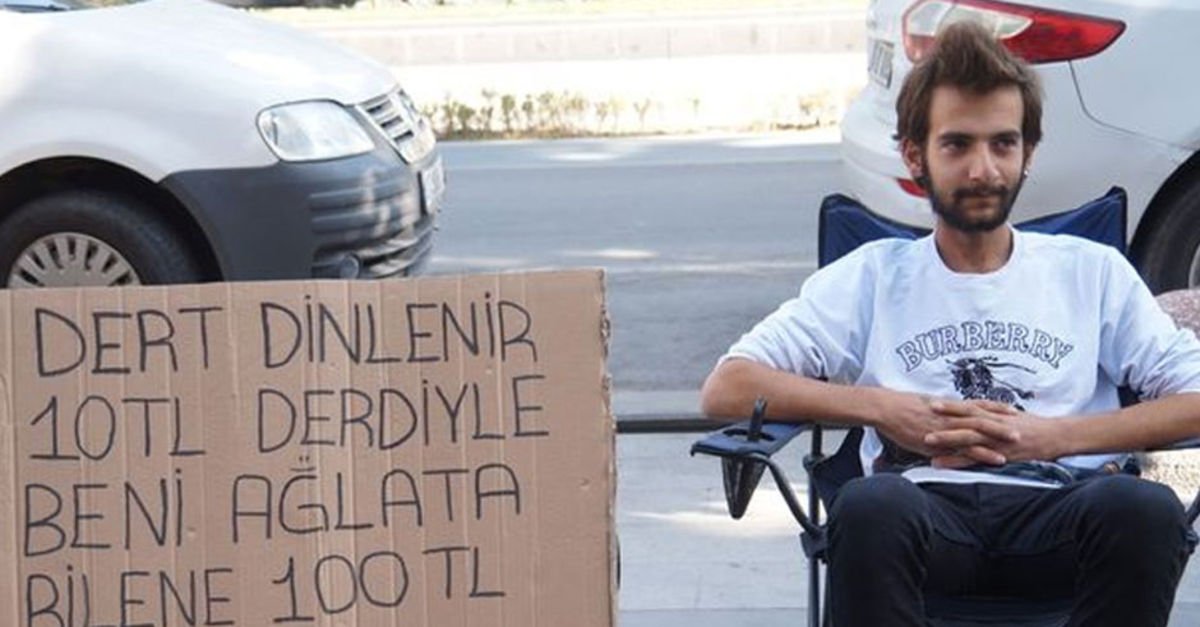 DERT DİNLENİR
10TL DERDİYLE
BENİ AĞLATA
BİLENE 100TL
BURBERRY